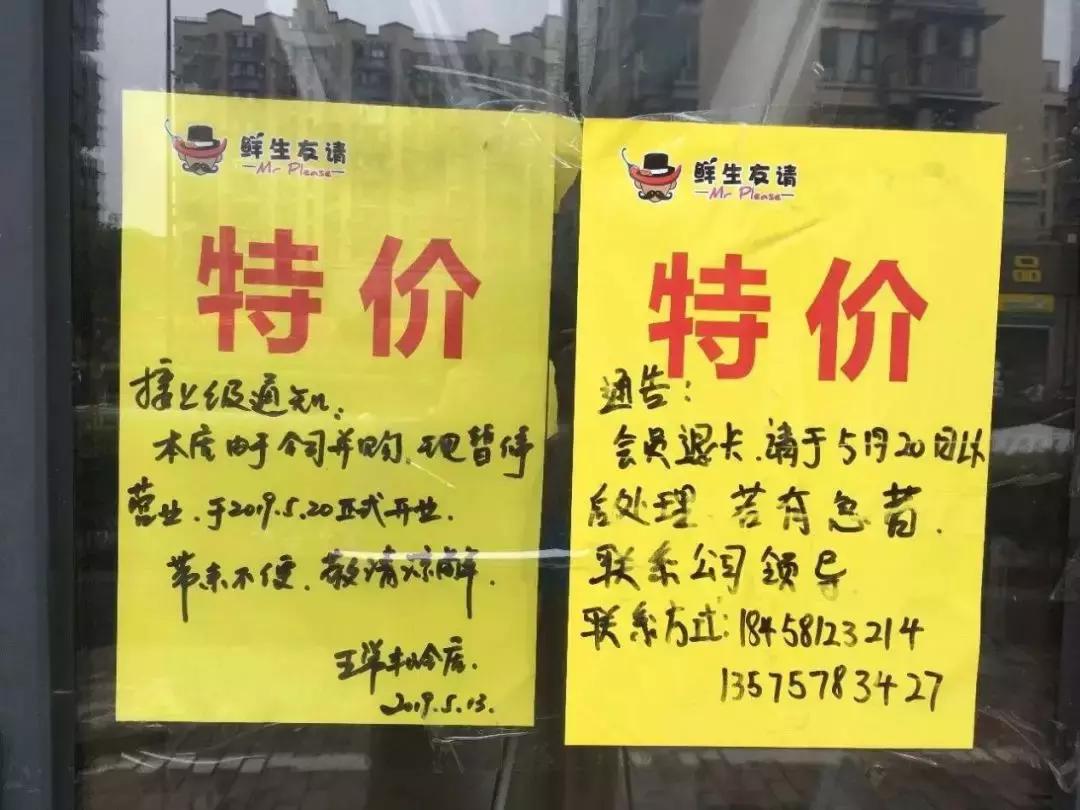 鲜生友请
Mr Please
特价
接上级通知:
本店由于公司并购,现暂停
营业,于2019.5.20正式开业.
带来不便,敬请凉解.
2019.5.13.
鲜生友请
Mr Please
特价
通告:
会员退卡,请于5月20日以
后处理,若有急者,
联系公司领导
联系方式:18458123214
13575783427